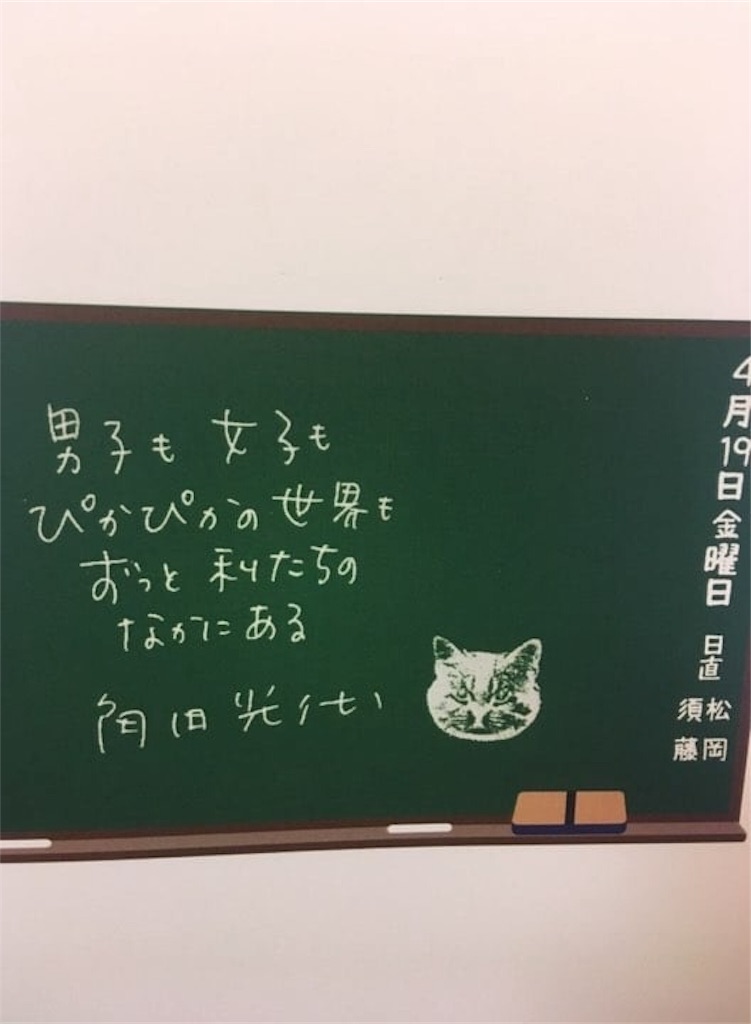 4月19日金曜日
日直
松岡
須藤
男子も 女子も
ぴかぴかの世界も
ずっと 私たちの
なかにある
角田光代